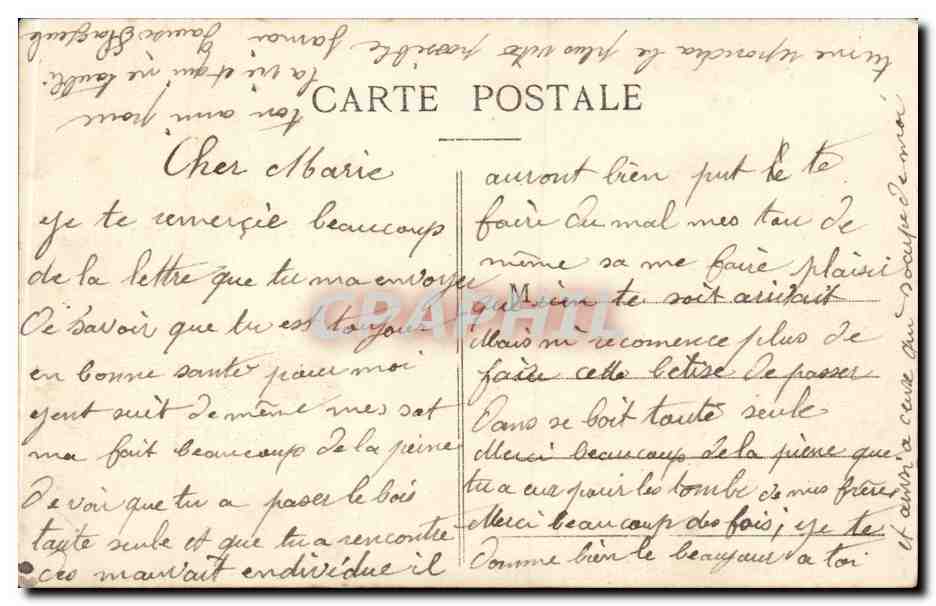 CARTE POSTALE
Cher Marie
Je te remerçie beaucoup
de la lettre que tu ma envoyer
De savoir que tu est toujour
en bonne santé pour moi
jent suit de même mes sat
ma fait beaucoup de la peine
De voir que tu a paser le bois
toute seule et que tu a rencontré
des mauvait endividue il
auront bien put te
faire du mal mes tou de
même sa me faire plaisir
M
que rien te soit arivait
Mais ni recomence plus de
faire cette betise de passer
Dans se boit toute seule
Merci beaucoup de la pièene que
tu a eux pour les tombe de mes frère
Merci beaucoup des fois; je te
Donne bien le beaujour a toi
et ausi a ceux qui s'ocupe de moi
tu me reponderá le plus vite possible
ton ami pour
la vie et qui ne
CRAPHIL